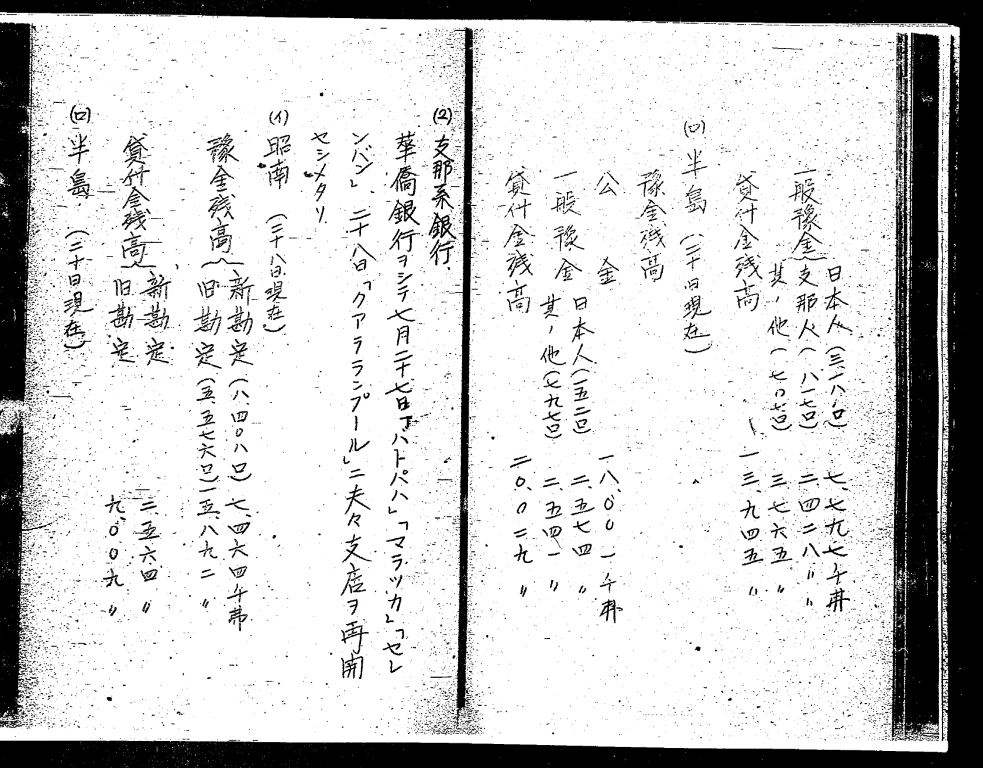 日本人(三一八口) 七、七九七千弗
一般豫金 支那人(八一七口) 二、四二八〃
其ノ他(七〇七口) 三、七六五〃
貸付金残高 一三、九四五〃
(ロ)半島(二十日現在)
豫金残高
公金 一八、〇〇一千弗
一般豫金 日本人(一五二口) 二、五七四〃
其ノ他(七九七口) 二、五四一〃
貸付金残高 二〇、〇二九〃
(2)支那系銀行
華僑銀行ヲシテ七月二十七日「バトパハ」「マラッカ」「セレ
ンバン」、二十八日「クアラランプール」ニ夫々支店ヲ再開
セシメタリ
(イ)昭南(二十八日現在)
豫金残高 新勘定(八四〇八口) 七、四六四千弗
旧勘定(五、五七六口) 一五、八九二〃
貸付金残高 新勘定 二、五六四〃
旧勘定 九、〇〇九〃
(ロ)半島(二十日現在)